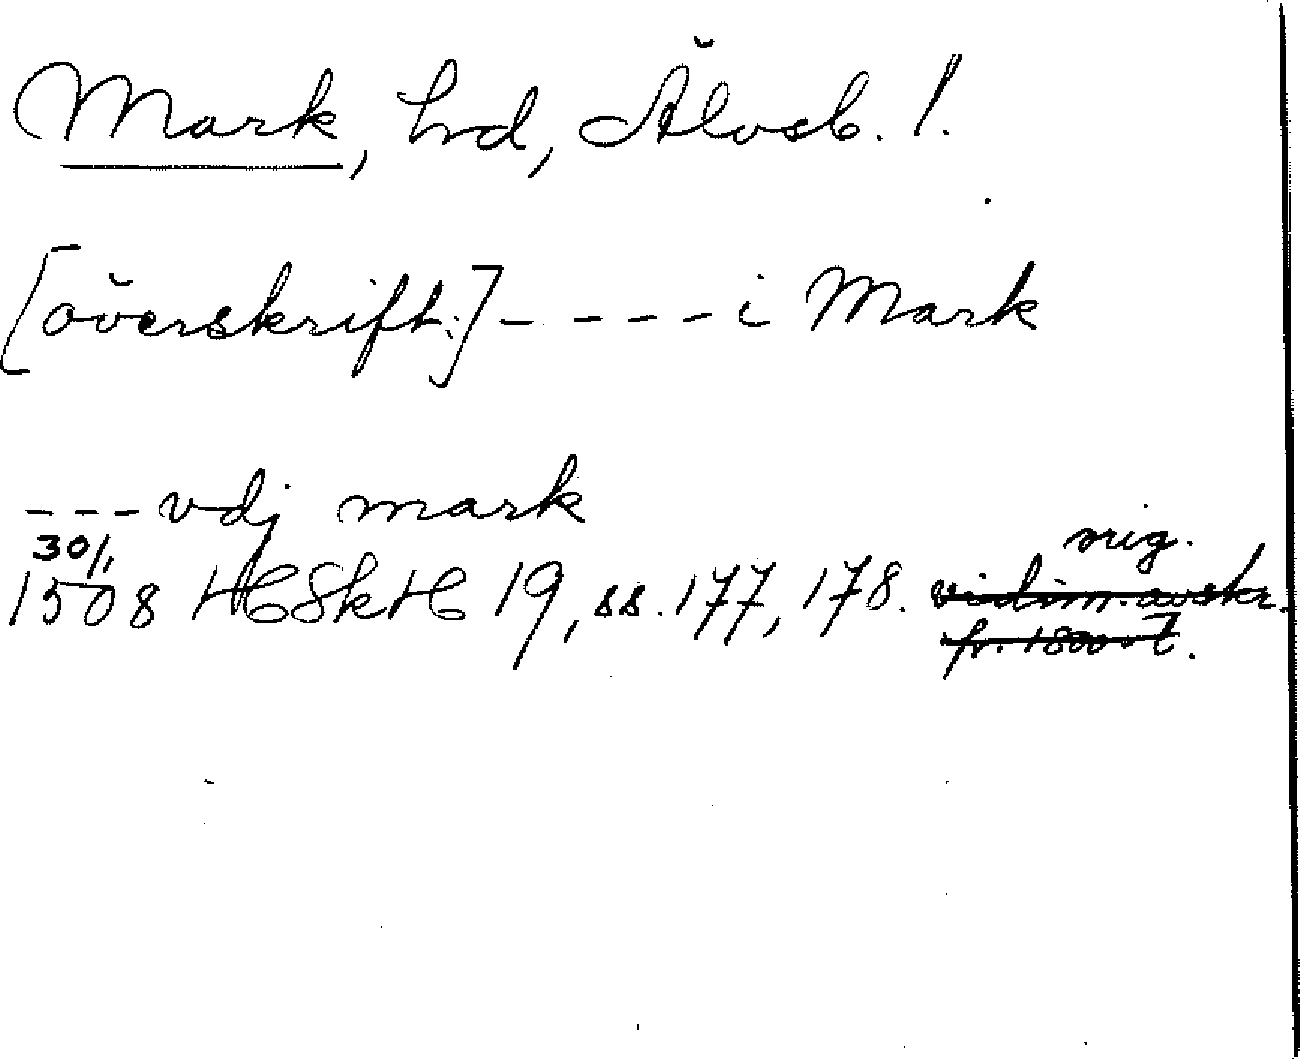 Mark, hrd, Älvsb. l.
[överskrift:] - - - - i Mark
- - - vdj mark
30/1
orig.
1508 HSkH 19, ss. 177, 178. vidim. avskr.
fr. 1800-t.